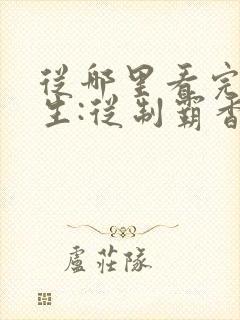 從哪里看完
生:從制霸香
盧莊隊